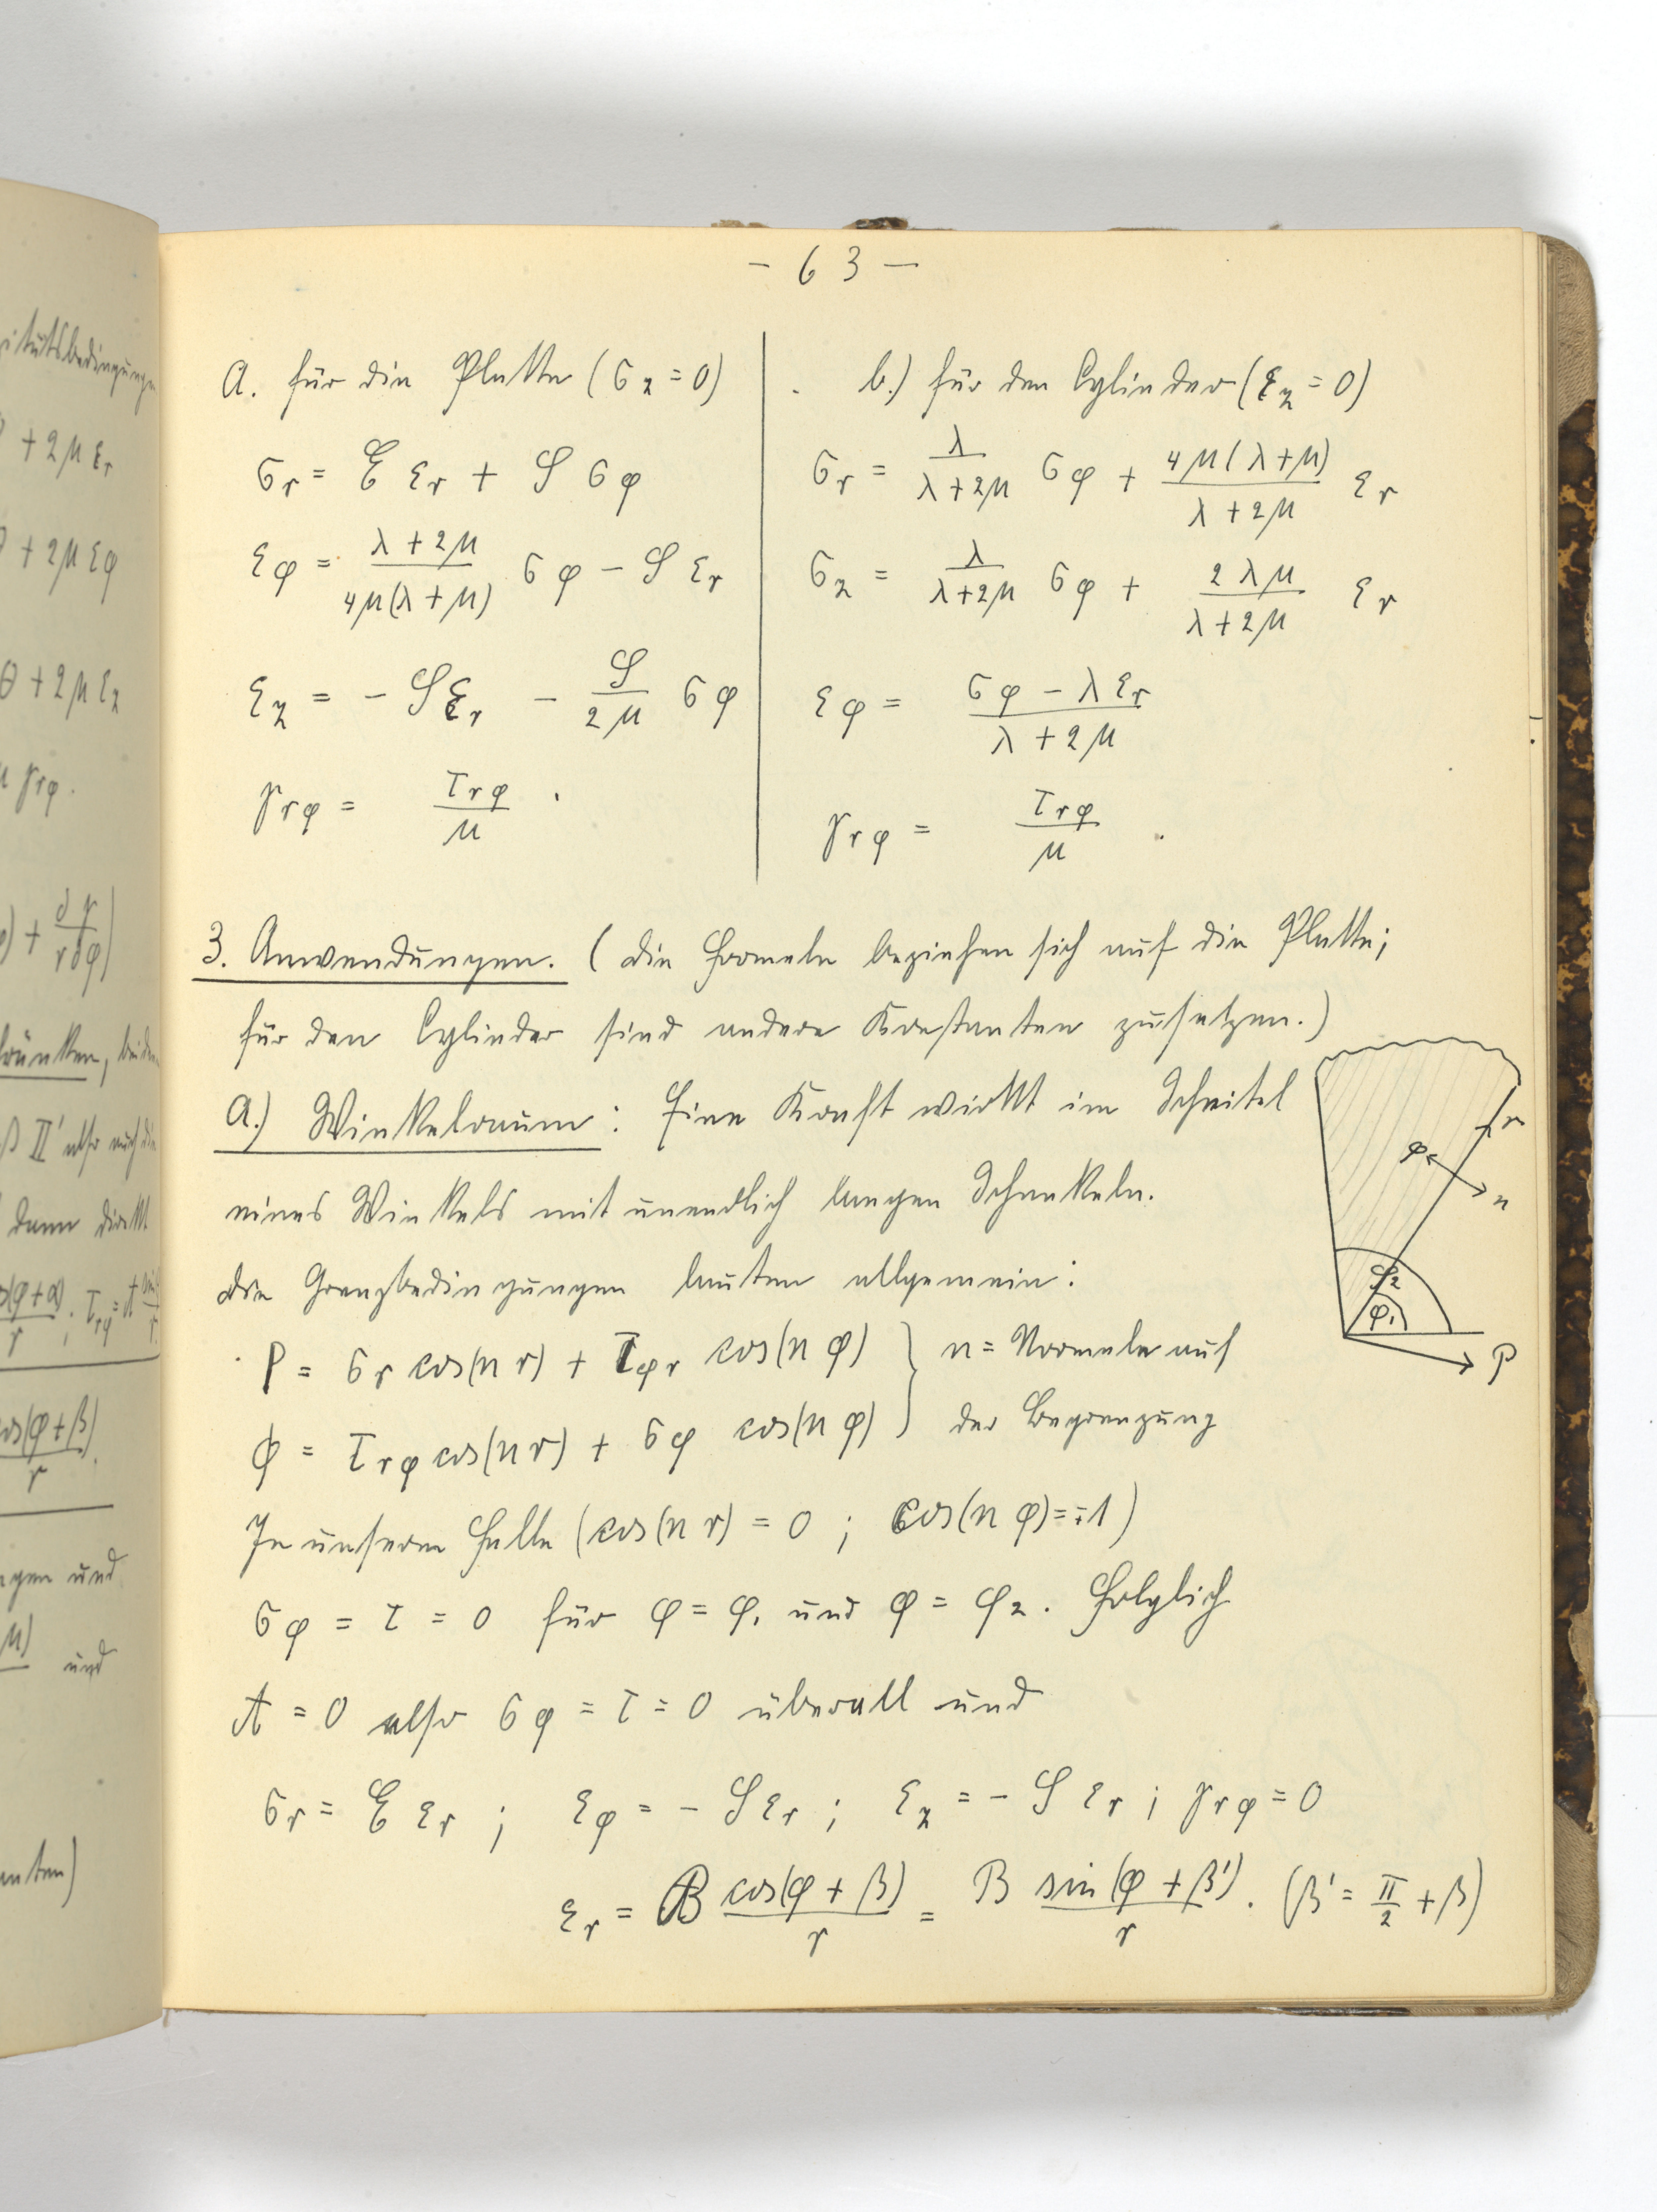 - 63 -
a. für die Platte (σz = 0)
σr = E εr + S σφ
εφ = (λ + 2μ)/(4μ(λ + μ)) σφ - S εr
εz = - S εr - S/(2μ) σφ
γrφ = τrφ/μ .
b.) für den Cylinder (εz = 0)
σr = λ/(λ + 2μ) σφ + 4μ(λ + μ)/(λ + 2μ) εr
σz = λ/(λ + 2μ) σφ + 2λμ/(λ + 2μ) εr
εφ = (σφ - λ εr)/(λ + 2μ)
γrφ = τrφ/μ .
3. Anwendungen. (die Formeln beziehen sich auf die Platte;
für den Cylinder sind andere Konstanten zu setzen.)
a.) Winkelraum: Eine Kraft wirkt im Scheitel
eines Winkels mit unendlich langen Schenkeln.
die Grenzbedingungen lauten allgemein:
P = σr cos(n r) + τφr cos(n φ) } n = Normale auf
ϕ = τrφ cos(n r) + σφ cos(n φ) } der Begrenzung
In unserm Falle (cos(n r) = 0 ; cos(n φ) = ∓1)
σφ = τ = 0 für φ = φ1 und φ = φ2. Folglich
A = 0 also σφ = τ = 0 überall und
σr = E εr ; εφ = - S εr ; εz = - S εr ; γrφ = 0
εr = B cos(φ + β)/r = B sin(φ + β')/r . (β' = π/2 + β)
r
φ
n
φ2
φ1
P